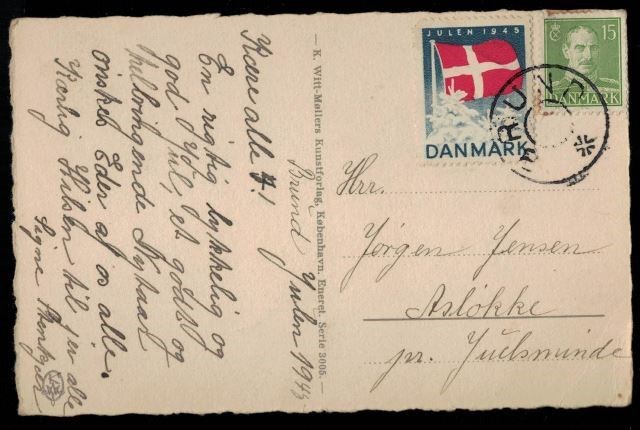 Brund Julen 1945
Kære alle 7!
En rigtig lykkelig og
god Jul, et godt og
velbringende Nytaar
ønskes Eder af os alle.
Kærlig Hilsen til jer alle
Signe
— K. Witt-Møllers Kunstforlag, København. Eneret. Serie 3005. —
JULEN 1945
DANMARK
15
DANMARK
BRUND
Hrr.
Jørgen Jensen
Asløkke
pr. Juelsminde